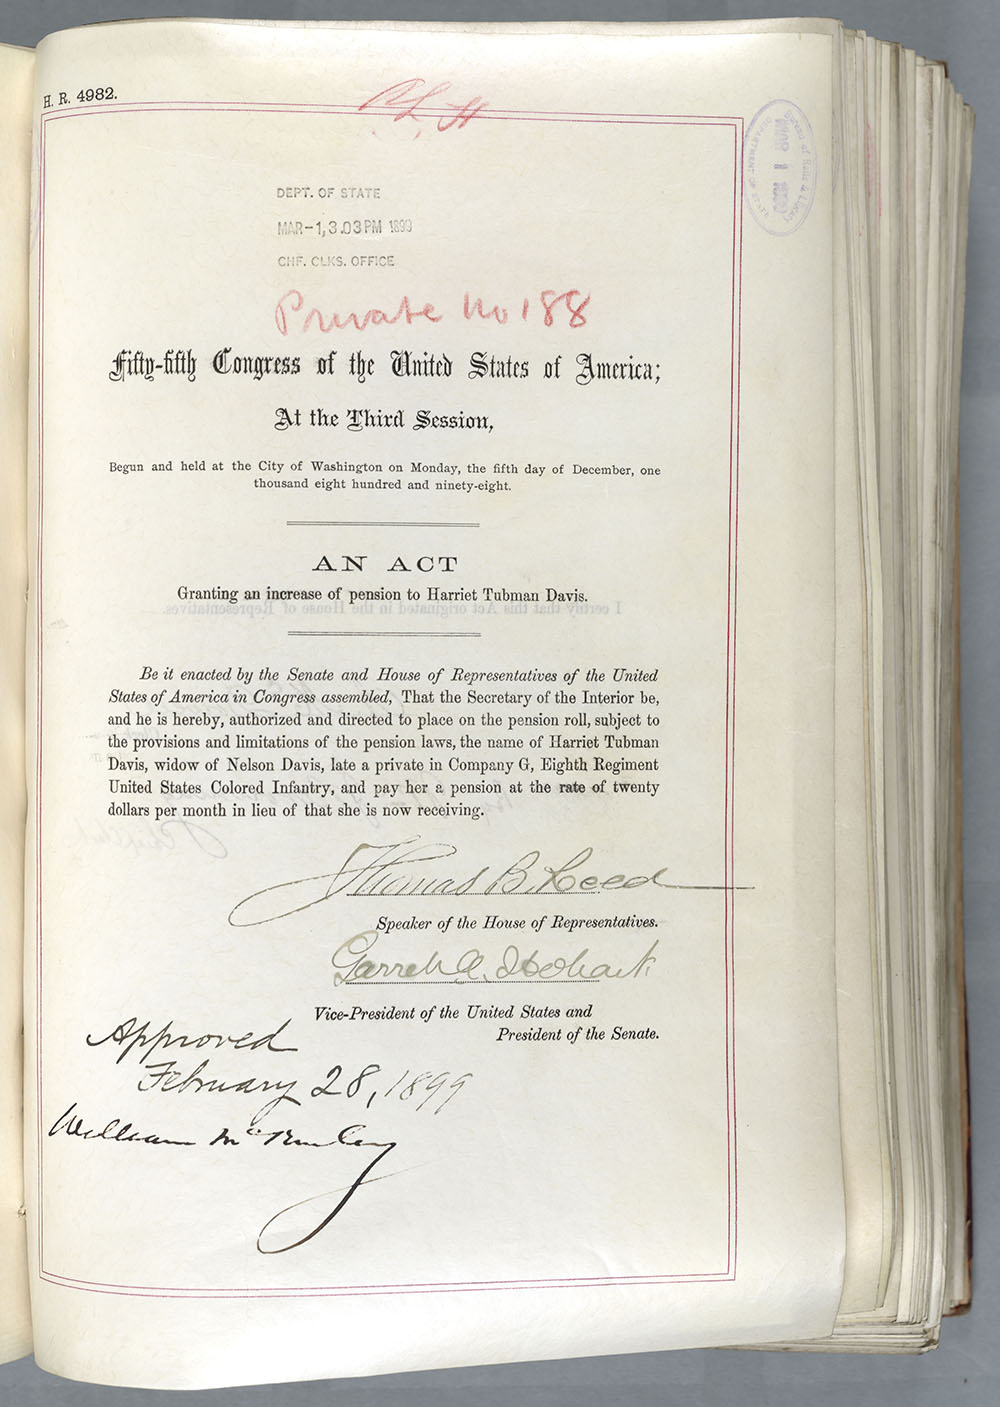 H. R. 4982.
DEPT. OF STATE
MAR-1, 3.03 PM 1899
CHF. CLKS. OFFICE
Bureau of Rolls & Library
MAR 1 1899
DEPARTMENT OF STATE
Private No 188
Fifty-fifth Congress of the United States of America;
At the Third Session,
Begun and held at the City of Washington on Monday, the fifth day of December, one
thousand eight hundred and ninety-eight.
AN ACT
Granting an increase of pension to Harriet Tubman Davis.
I certify that this Act originated in the House of Representatives.
Be it enacted by the Senate and House of Representatives of the United
States of America in Congress assembled, That the Secretary of the Interior be,
and he is hereby, authorized and directed to place on the pension roll, subject to
the provisions and limitations of the pension laws, the name of Harriet Tubman
Davis, widow of Nelson Davis, late a private in Company G, Eighth Regiment
United States Colored Infantry, and pay her a pension at the rate of twenty
dollars per month in lieu of that she is now receiving.
Thomas B. Reed
Speaker of the House of Representatives.
Garret A. Hobart.
Vice-President of the United States and
President of the Senate.
Approved
February 28, 1899
William McKinley